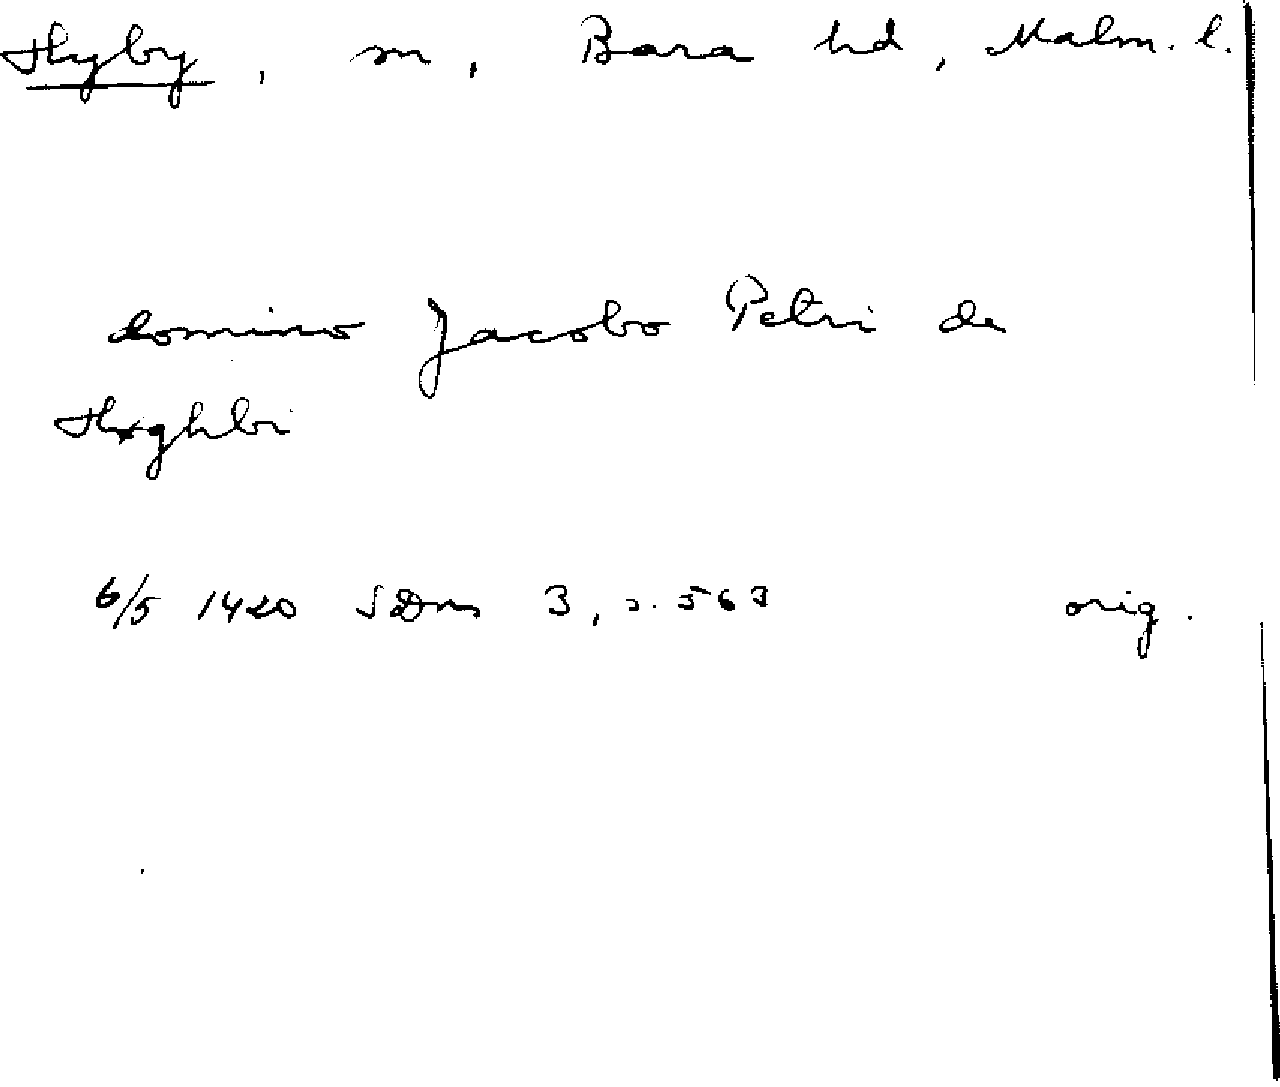 Hyby, sn, Bara hd, Malm. l.
domino Jacobo Petri de
Hxghbi
6/5 1420 SDns 3, s. 563 orig.